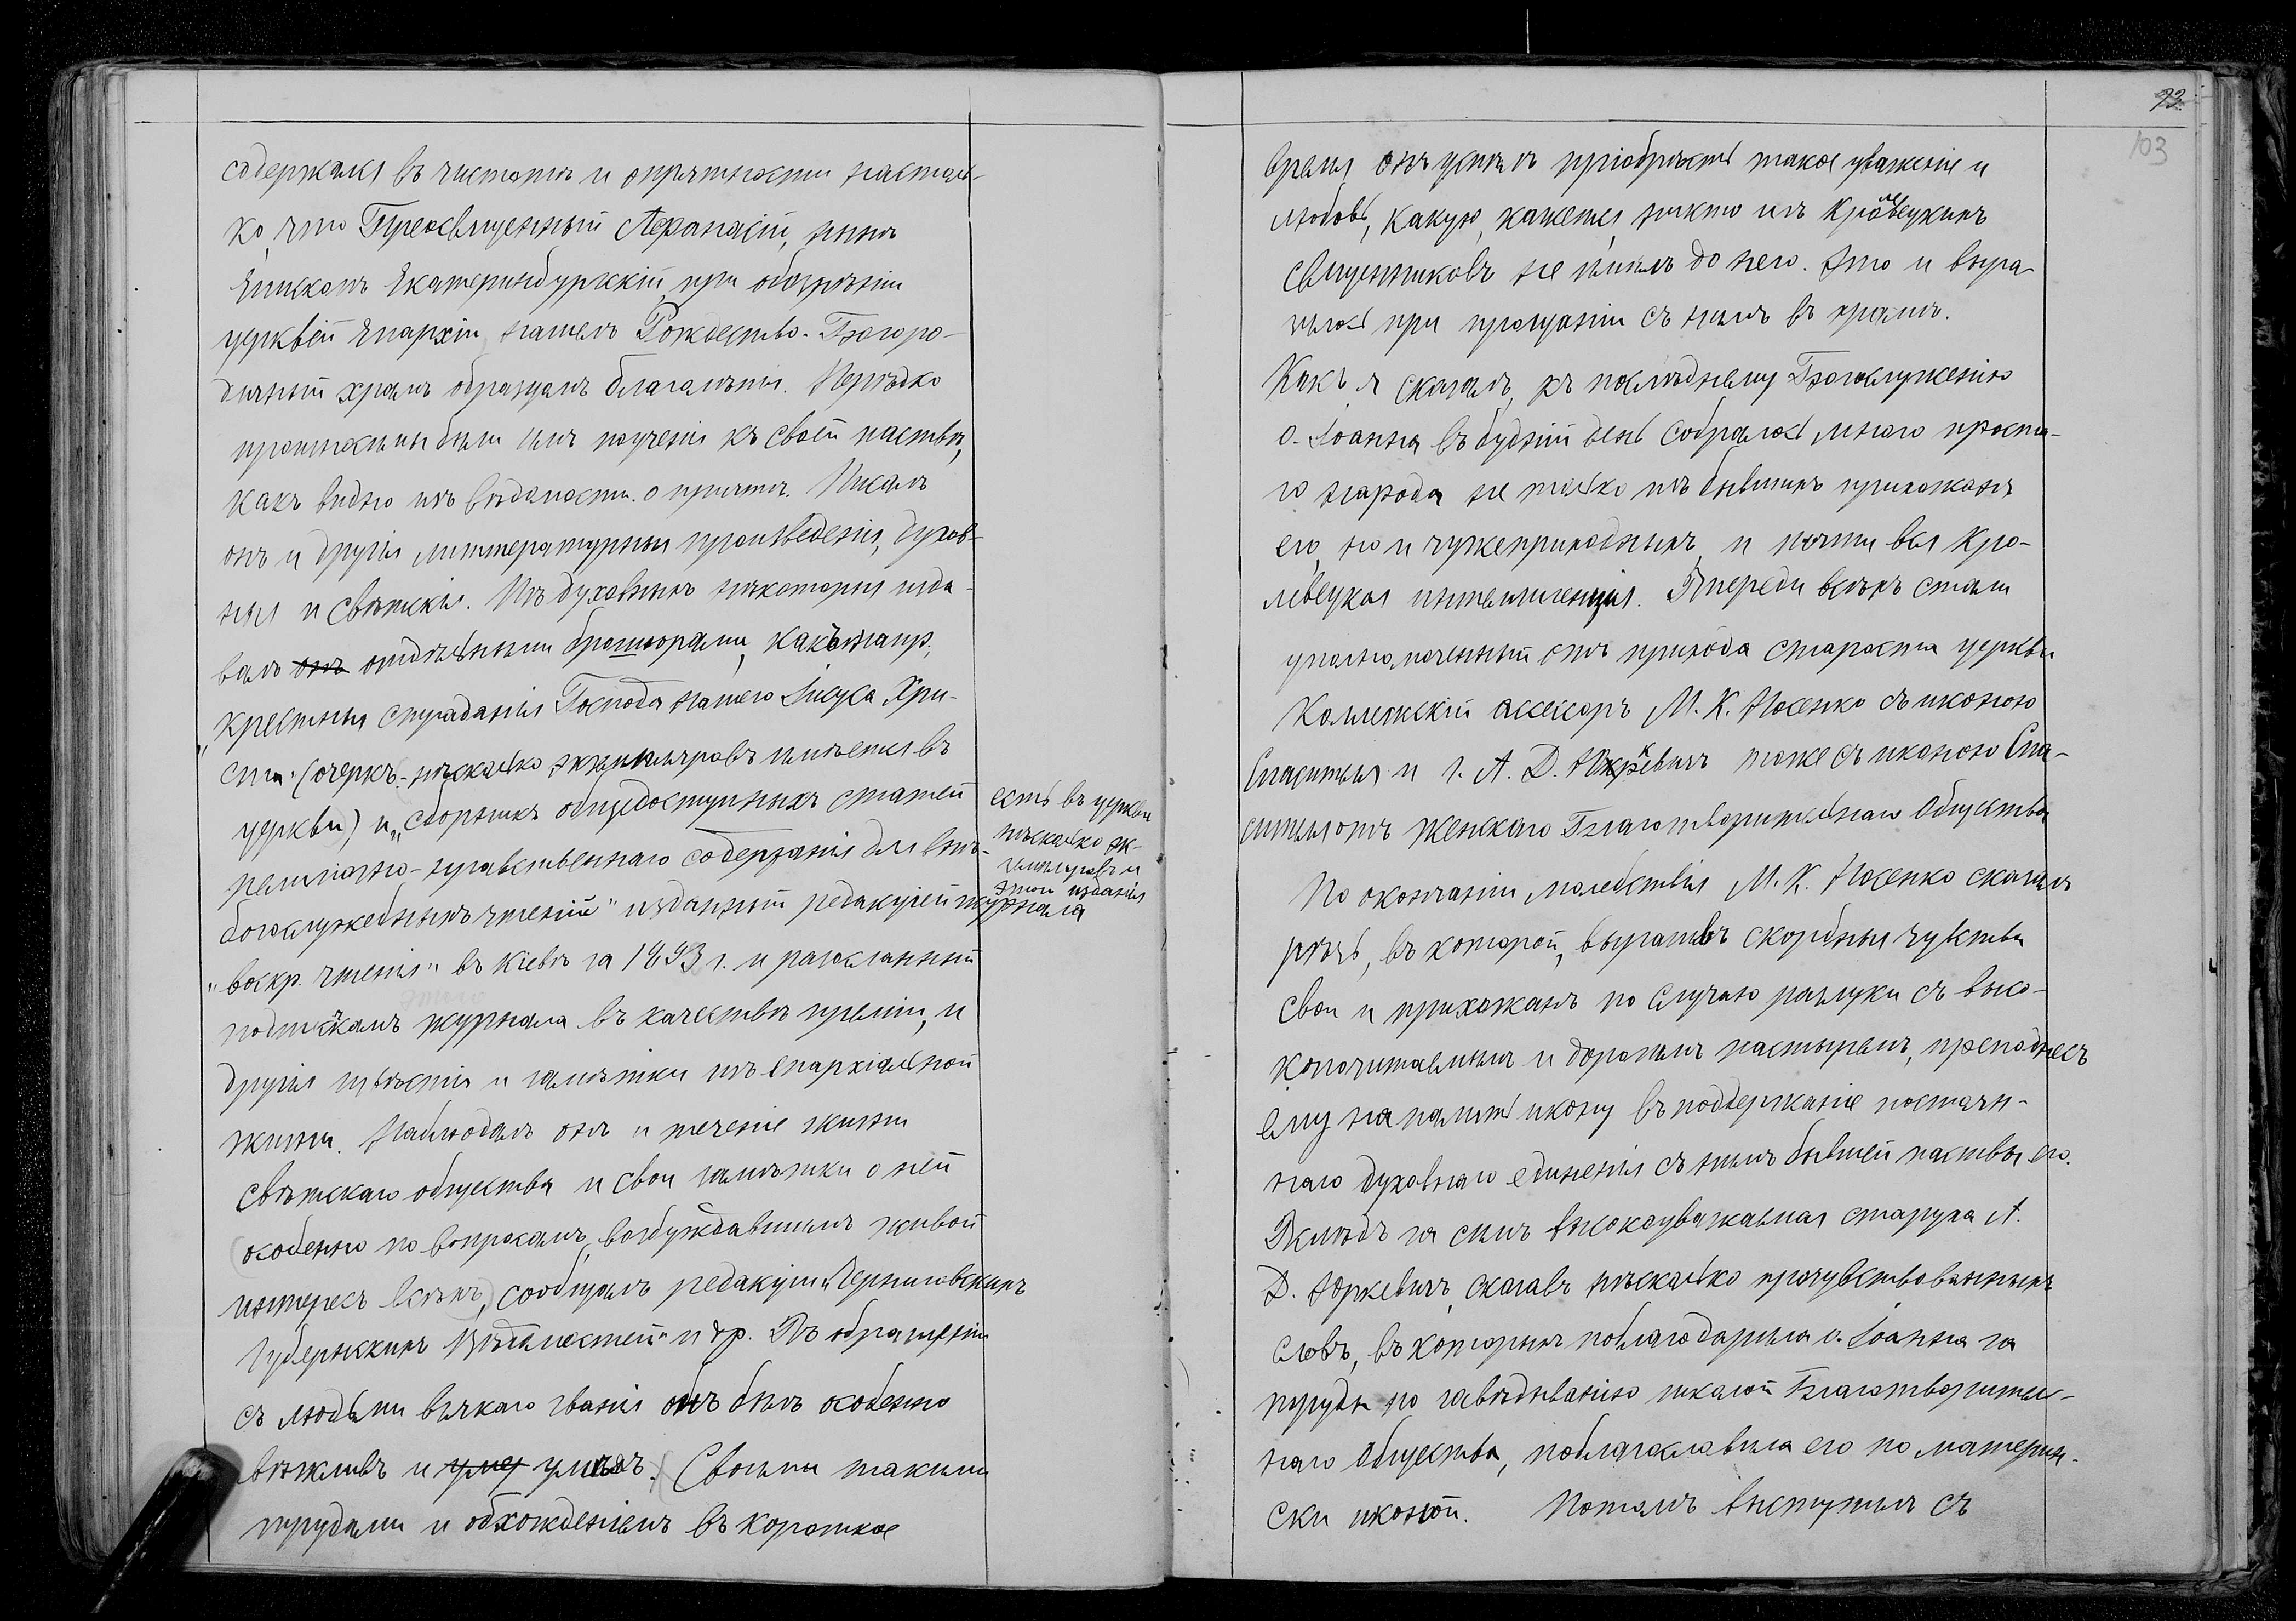 содержался въ чистотѣ и опрятности настоль-
ко, что Преосвященный Афанасій, нынѣ
Епископъ Екатеринбургскій, при обозрѣніи
церквей епархіи, нашелъ Рождество-Богоро-
дичный храмъ образцомъ благолѣпія. Нерѣдко
произносимы были имъ поученія къ своей паствѣ,
какъ видно изъ вѣдомости о причтѣ. Писалъ
онъ и другія литтературныя произведенія, духов-
ныя и свѣтскія. Изъ духовныхъ нѣкоторыя изда-
валъ онъ отдѣльными брошюрами, какъ напр.
„Крестныя страданія Господа нашего Іисуса Хри-
ста“ (очеркъ - нѣсколько экземпляровъ имѣется въ
церкви) и „Сборникъ общедоступныхъ статей
религіозно-нравственнаго содержанія для внѣ-
богослужебныхъ чтеній“ изданный редакціей журнала
„воскр. чтенія“ въ Кіевѣ за 1893 г. и разосланный
подписчикамъ этого журнала въ качествѣ преміи, и
другія извѣстія и замѣтки изъ епархіальной
жизни. Наблюдалъ онъ и теченіе жизни
свѣтскаго общества и свои замѣтки о ней
(особенно по вопросамъ, возбуждавшимъ живой
интересъ всѣхъ), сообщалъ редакціи „Черниговскихъ
Губернскихъ Вѣдомостей“ и др. Въ обращеніи
съ людьми всякаго званія онъ былъ особенно
вѣжливъ и умѣ уменъ. Своими такими
трудами и обхожденіемъ въ короткое
есть въ церкви
нѣсколько эк-
земпляровъ и
этого изданія
93.
103
время онъ успѣлъ пріобрѣсть такое уваженіе и
любовь, какую, кажется, никто изъ Кролевецкихъ
священниковъ не имѣлъ до него. Это и выра-
зилось при прощаніи съ нимъ въ храмѣ.
Какъ я сказалъ, къ послѣднему Богослуженію
о. Іоанна въ будній день собралось много проста-
го народа не только изъ бывшихъ прихожанъ
его, но и чужеприходныхъ, и почти вся Кро-
левецкая интеллигенція. Впереди всѣхъ стали
уполномоченный отъ прихода староста церкви
Коллежскій ассесоръ М. К. Носенко съ иконою
Спасителя и г. А. Д. Юркевичъ тоже съ иконою Спа-
сителя отъ Женскаго Благотворительнаго Общества
По окончаніи молебствія М. К. Носенко сказалъ
рѣчь, въ которой, выразивъ скорбныя чувства
свои и прихожанъ по случаю разлуки съ высо-
копочитаемымъ и дорогимъ пастыремъ, преподнесъ
ему на память икону въ поддержаніе постоян-
наго духовнаго единенія съ нимъ бывшей паствы его.
Вслѣдъ за симъ высокоуважаемая старуха А.
Д. Юркевичъ, сказавъ нѣсколько прочувствованныхъ
словъ, въ которыхъ поблагодарила о. Іоанна за
труды по завѣдыванію школой Благотворитель-
наго Общества, поблагословила его по материн-
ски иконой. Потомъ выступилъ съ